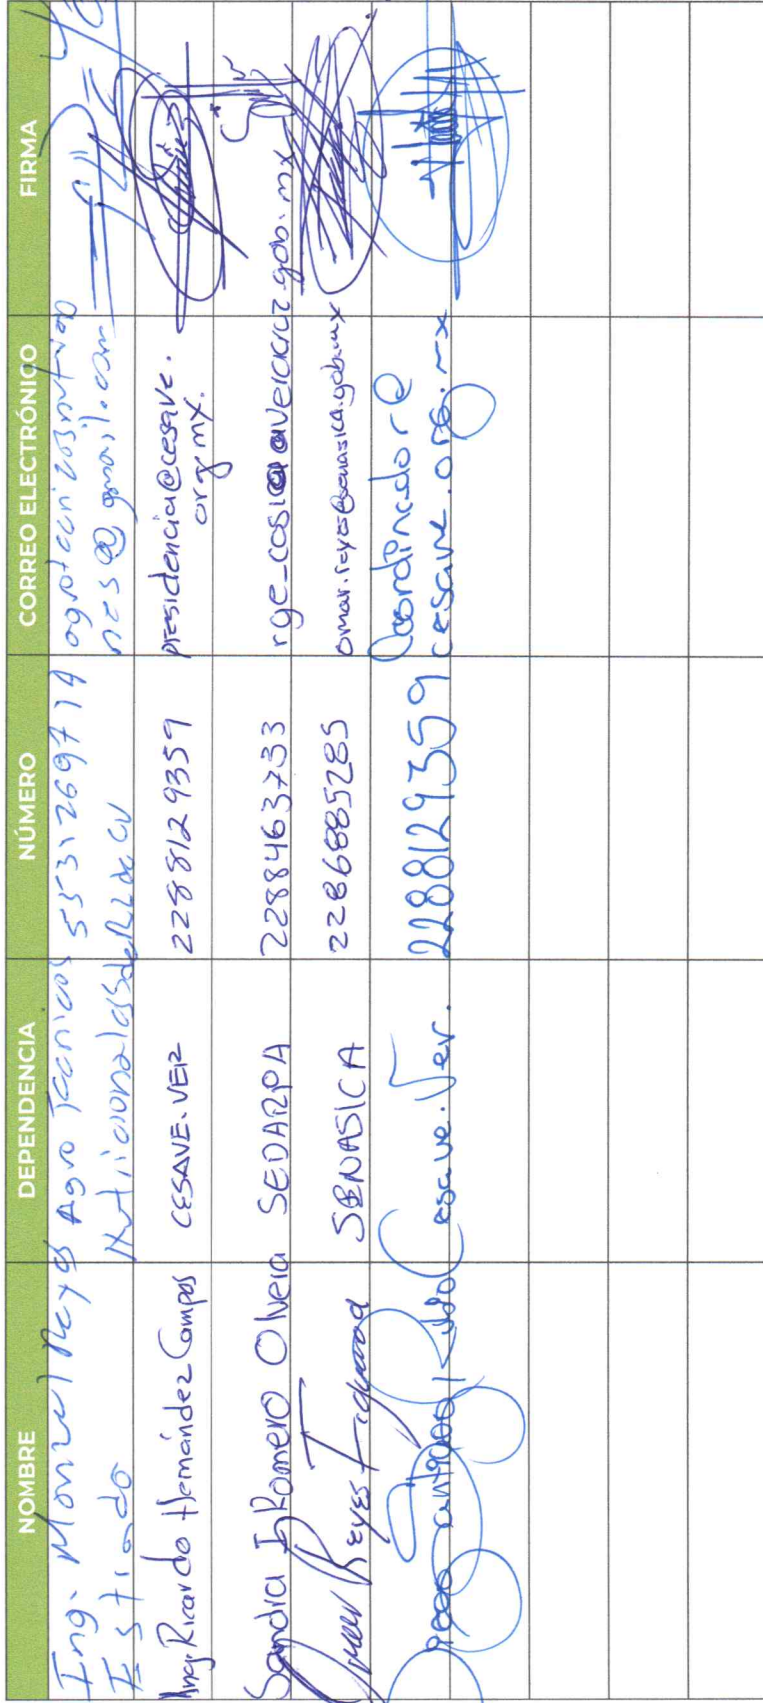 NOMBRE DEPENDENCIA NÚMERO CORREO ELECTRÓNICO FIRMA
Ing. Manuel Reyes Agro Tecnicos 5531269714
Nutricionales S de RL de CV nes@gmail.com
Ing. Ricardo Hernández Campos CESAVE.VER 2288129359 presidencia@cesave.
org.mx.
Sandra I Romero Olvera SEDARPA 2288463733
Omar Reyes Figueroa SENASICA 2286885285 omar.reyes@senasica.gob.mx
Cesave.Ver. 2288129359 Coordinador@
cesave.org.mx